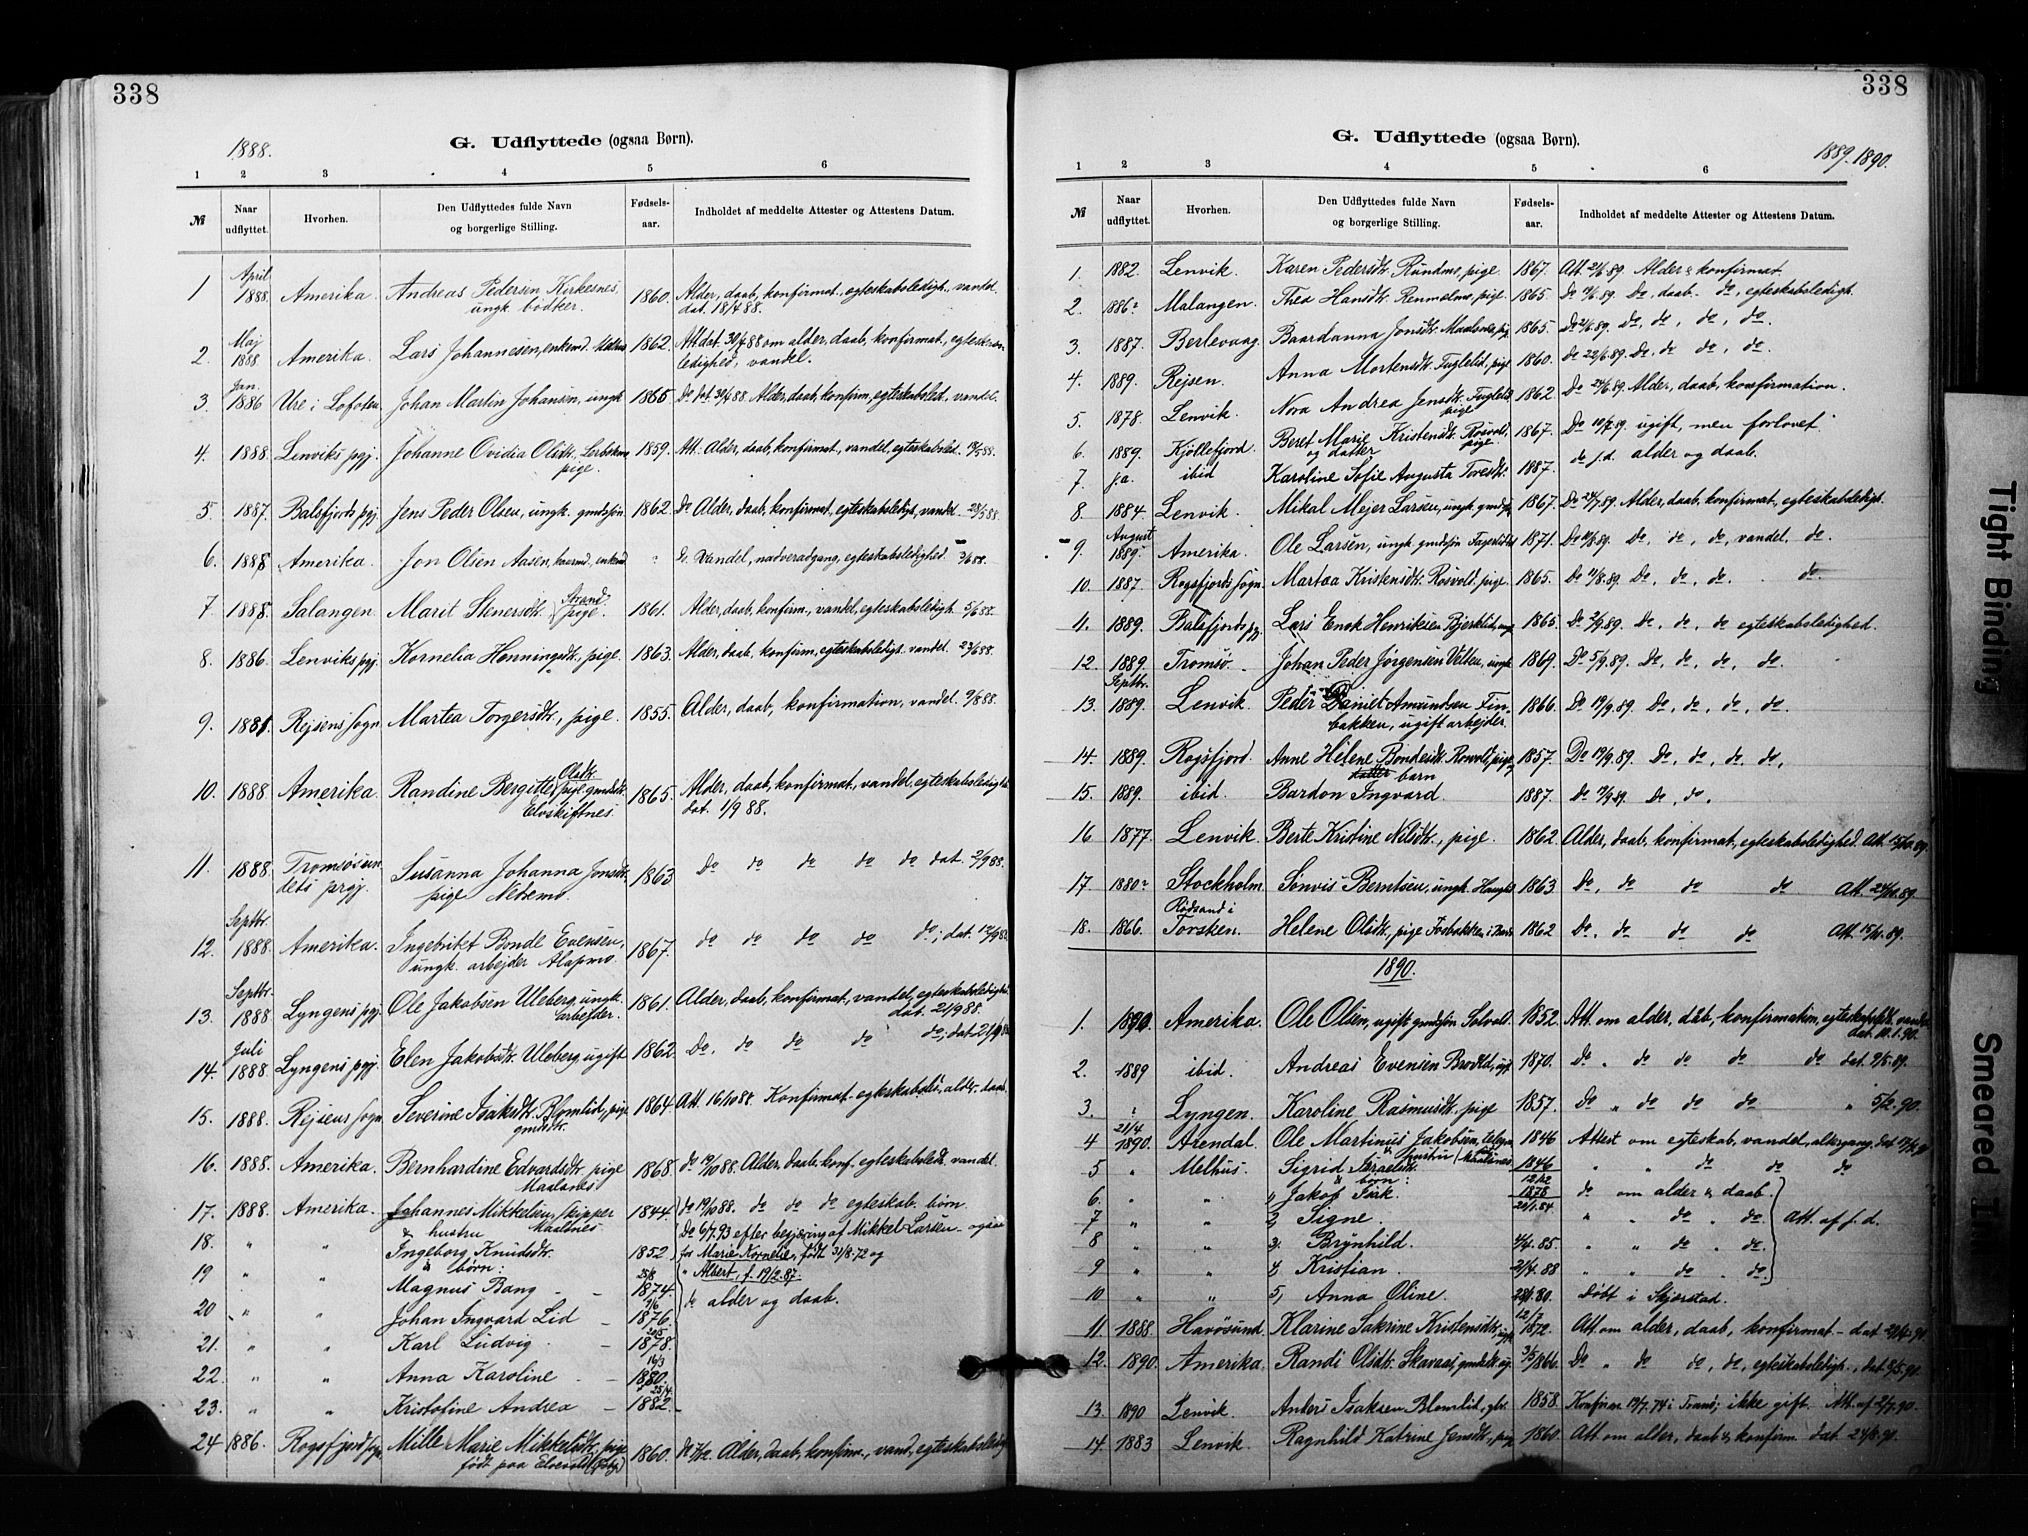 338
1888.
G. Udflyttede (ogsaa Børn).
1 2 3 4 5 6
№ Naar udflyttet. Hvorhen. Den Udflyttedes fulde Navn og borgerlige Stilling. Fødsels-aar. Indholdet af meddelte Attester og Attestens Datum.
1 April 1888. Amerika. Andreas Pedersen Kirkesnes, 1860. Alder, daab, konfirmat., egteskabsledigh., vandel.
ungk. bødker. dat. 18/4 88.
2. Maj 1888 Amerika. Lars Johannesen, enkemd. 1862. Att. dat. 30/4 88 om alder, daab, konfirmat., egteskabs-
ledighed, vandel.
3. Jan. 1886 Ure i Lofoten Johan Martin Johansen, ungk. 1865 Do dat. 30/4 88. Alder, daab, konfirm., egteskabsled., vandel.
4. 1888. Lenviks pgj. Johanne Ovidia Olsdtr. 1859. Att. Alder, daab, konfirmat., vandel, egteskabsled.
pige.
5. 1887. Balsfjords pgj. Jens Peder Olsen, ungk. gmdssøn 1862. Do Alder, daab, konfirmat., egteskabsledigt, vandel. 28/5 88.
6. 1888. Amerika. Jon Olsen Aasen, enkemd " Do Vandel, nadveradgang, egteskabsledighed. 2/6 88.
7. 1888. Salangen. Marit Stenersdtr. Strand pige. 1861. Alder, daab, konfirm., vandel, egteskabsledigh. 5/6 88.
8. 1886. Lenviks pgj. Kornelia Henningsdtr., pige. 1863. Alder, daab, konfirm., egteskabsledigt. vandel. 23/6 88.
9. 1881. Rejsens sogn Martea Torgersdtr., pige. 1855. Alder, daab, konfirmation, vandel. 9/8 88.
10. 1888 Amerika. Randine Bergitte Olsdtr. pige. gmdsdtr. 1865. Alder, daab, konfirmat., vandel, egteskabsledighd.
Elvskiftnes. dat. 1/9 88.
11. 1888. Tromsøsun- Susanna Johanna Jonsdtr. 1863 Do do do do do dat. 3/9 88.
dets prgj. pige Nedremo.
12. Septbr. 1888. Amerika. Ingebrikt Bonde Evensen, 1867. do do do do do; dat. 12/9 88
ungk. arbejder Alapmo.
13. Septbr. 1888 Lyngens pgj. Ole Jakobsen Uleberg ungk. 1861. Alder, daab, konfirmat., vandel, egteskabsledigh.
arbejder. dat. 21/9 88.
14. Juli 1888 Lyngens pgj. Elen Jakobsdtr. Uleberg ugift 1862. Do, do do do do, dat. 21/9 88
15. 1888. Rejsens sogn Severine Isaksdtr. Blomlid, pige 1864. Att. 16/10 88. Konfirmat. egteskabsl., alder, daab
gmdsdtr.
16. 1888. Amerika. Bernhardine Edvardsdtr. pige 1868. do 19/10 88. Alder, daab, konf. egteskabsledt. vandel.
Maalsnes
17. 1888. Amerika. Johannes Mikkelsen, skipper 1844. do 19/10 88. do do do egteskab. børn
& hustru Maalsnes Do 6/7. 93 efter begjæring af Mikkel Larsen – ogsaa
18. " " Ingeborg Knudsdtr. 1852. for Marie Kornelie, født 31/8-72 og
& børn: " Albert, f. 19/2. 87.
19 " " Magnus Bang 25/8 1874. do alder og daab.
20 " " Johan Ingvard Lid 9/6 1876.
21. " " Karl Ludvig. 20/5 1878.
22. " " Anna Karoline 16/3 1880.
23. " " Kristofine Andrea 25/4 1882.
24 1886. Rogsfjord sgn. Mille Marie Mikkelsdtr. pige 1860. Alder, daab, konfirm., vand., egteskabsledigh
født paa Elvevold
338
G. Udflyttede (ogsaa Børn).
1889. 1890.
1 2 3 4 5 6
№ Naar udflyttet. Hvorhen. Den Udflyttedes fulde Navn og borgerlige Stilling. Fødsels-aar. Indholdet af meddelte Attester og Attestens Datum.
1. 1882. Lenvik. Karen Pedersdtr. Rundmo, pige. 1867. Att. 21/6. 89. Alder & konfirmat.
2. 1886? Malangen. Thea Hansdtr. Renmælmo, pige. 1865. Do, daab, do, egteskabsledigh.
3. 1887. Berlevaag. Baardanna Jonsdtr. Maalsnes, pig. 1865. Do 21/6. 89. Do, do, do, do.
4. 1889. Rejsen. Anna Mortensdtr. Fuglelid, pige 1860. do 22/6. 89. Do, do do, do.
5. 1878. Lenvik. Nora Andrea Jensdtr. Fuglelid 1862. Do Alder, daab, konfirmation.
pige
6. 1889. Kjøllefjord. Beret Marie Kristensdtr. Rosvold, 1867. Do ugift, men forlovet.
og datter pige.
7. f.a. ibid Karoline Sofie Augusta Toresdtr. 1887. do f.d. alder og daab.
8. 1884. Lenvik. Mikal Mejer Larsen, ungk. gmdss. 1867. Do 24/7. 89. Alder, daab, konfirmat., egteskabsledigt.
9. August 1889. Amerika. Ole Larsen, ungk gmdssøn Fagerlidal 1871. Do Do, do, do, vandel, do.
10. 1887. Rogsfjords sogn. Martea Kristensdtr. Rosvold, pige. 1865. Do 11/8. 89. Do, do, do do.
11. 1889. Balsfjords pgj. Lars Enok Henriksen Bjerklid, ung. 1865. Do 2/9. 89. Do, do, do egteskabsledighed.
12. 1889. Tromsø. Johan Peder Jørgensen Velten, ungk. 1869. Do 5/9. 89. Do, do, do, do.
13. Septbr. 1889. Lenvik. Peder Daniel Amundsen Fin- 1866. Do 19/9. 89. Do, do, do, do.
bakken, ugift arbejder.
14. 1889. Rogsfjord. Anne Helene Bondesdtr. Rosvold, pige 1857. Do 19/9. 89. Do, do, do, do.
barn
15. 1889. ibid. Bardon Ingvard. 1887. Do 19/9. 89. Do, do.
16 1877. Lenvik Berte Kristine Nilsdtr., pige. 1862. Alder, daab, konfirmat, egteskabsledighed. Att. 15/10. 89.
17 1880? Stockholm Sønvis Berntsen, ungk. 1863 Do, do do do Att. 24/10. 89.
18. 1866. Rødsand i Torsken. Helene Olsdtr. pige Fosbakken 1862 Do, do do do Att. 15/11. 89.
1890.
1. 1890. Amerika. Ole Olsen, ugift gmdssøn Solvold. 1852. Att. om alder, daab, konfirmation, egteskabsledt. vandel
dat. 10. 1. 90.
2. 1889 ibid. Andreas Evensen 1870. do " do do do do dat. 9/5. 89.
3. " Lyngen. Karoline Rasmusdtr. pige 1857. do " do do do " 5/2. 90.
4 21/4 1890. Arendal. Ole Martinus Jakobsen, 1846 Attest om egteskab, vandel, altergang.
& hustru Maalsnes
5 " Melhus. Sigrid Israelsdtr. 1846 " " do do do
& børn:
6. " " 1, Jakob Isak. 12/12 1878 do om alder & daab.
7 " " 2, Signe. 20/1. 84 " " do " do. Att. af f. d.
8 " " 3, Brynhild. 4/4. 85. " " do " do.
9 " " 4, Kristian. 2/4. 88 " " do " do.
10 " " 5, Anna Oline. 80. Døbt i Skjerstad.
11 1888. Havøsund. Klarine Sakrine Kristensdtr. 12/7 1872. Att. om alder, daab, konfirmat. –
12. 1890. Amerika. Randi Olsdtr. Skavaas, gmdsdtr. 3/5 1866. Do " do do, do, egteskabsledigh., dat. 8/5. 90.
13. 1890 Lenvik. Anders Isaksen Blomlid, 1858. Konfirm. 19/7. 74 i Tranø; ikke gift. Att. af 2/7. 90.
14. 1883 Lenvik. Ragnhild Katrine Jensdtr., pige 1860. Att. om alder, daab & konfirm. dat. 24/8. 90.
Tight Binding
Smeared Ink